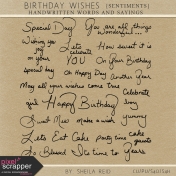 BIRTHDAY WISHES {SENTIMENTS}
HANDWRITTEN WORDS AND SAYINGS
Special Day You are all things wonderful...
Wishing you joy Let's celebrate How sweet it is
on your YOU On Your Birthday
special boy Oh Happy Day Another Year
May all your wishes come true Celebrate
girl Happy Birthday boy
Sweet Mess Make a wish yummy
Let's Eat Cake party time cake
So Blessed It's time to Years
pixel scrapper
BY SHEILA REID